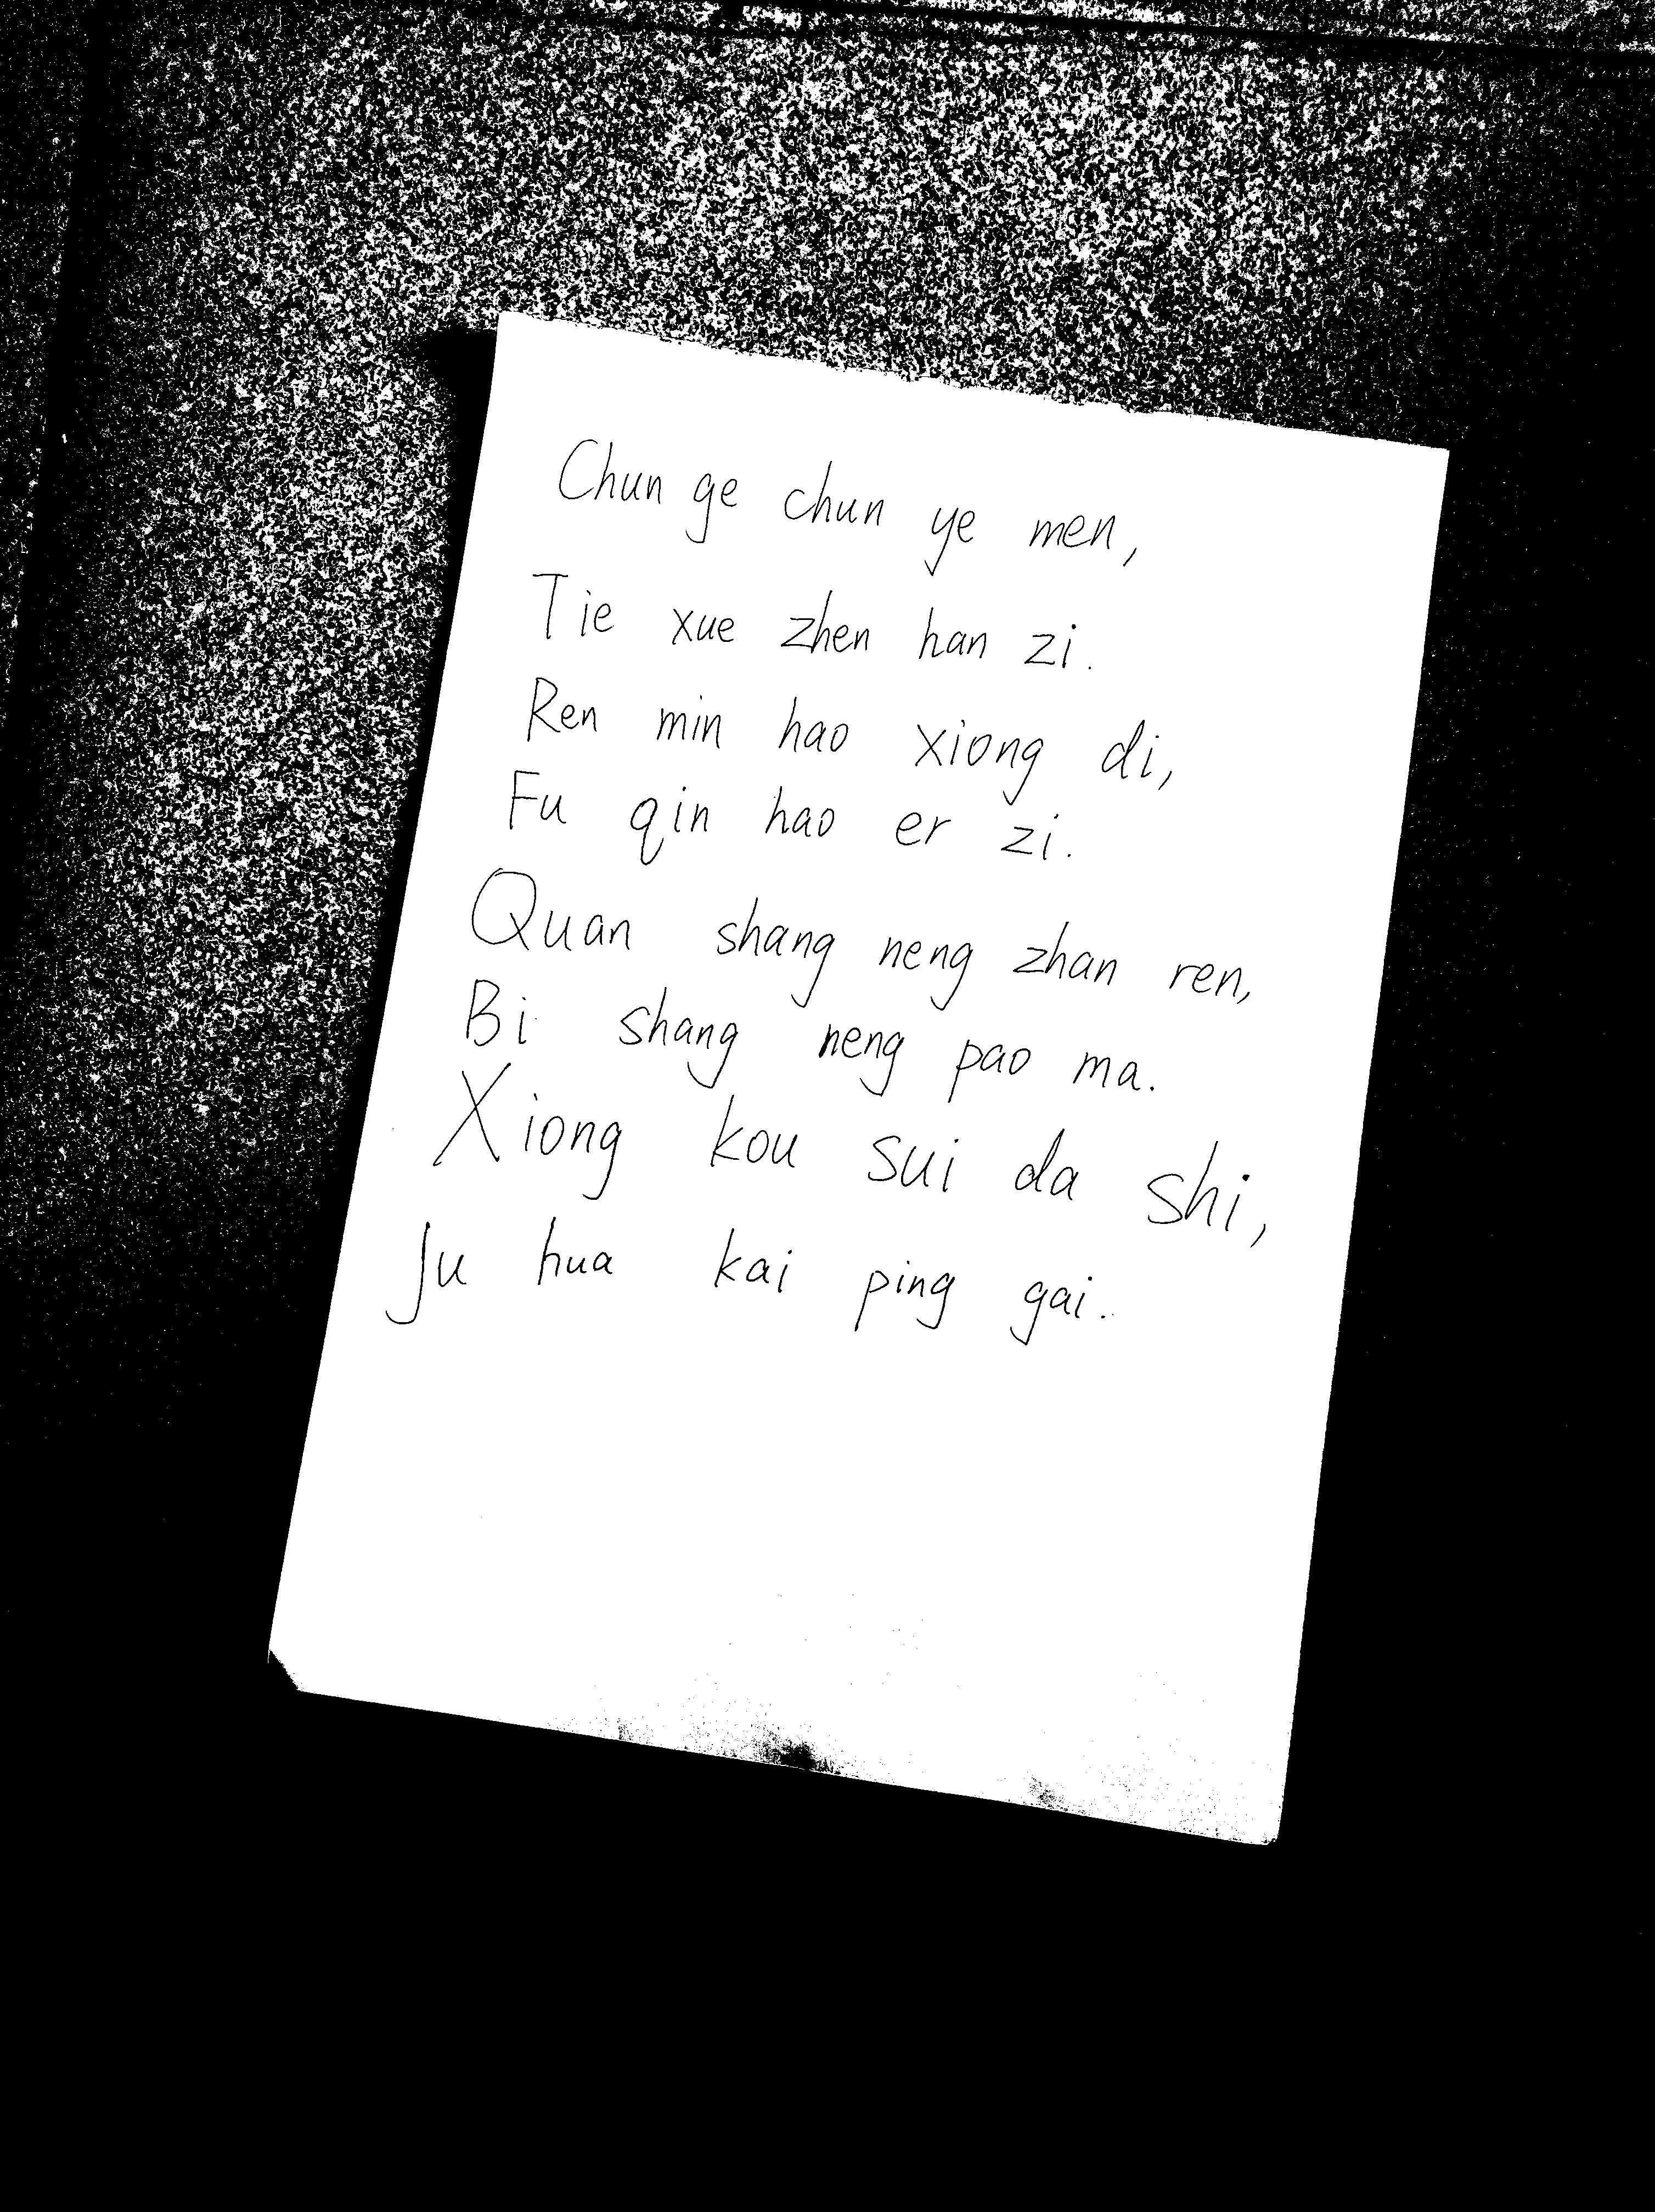 Chun ge chun ye men,
Tie xue zhen han zi.
Ren min hao xiong di,
Fu qin hao er zi.
Quan shang neng zhan ren,
Bi shang neng pao ma.
Xiong kou sui da shi,
Ju hua kai ping gai.